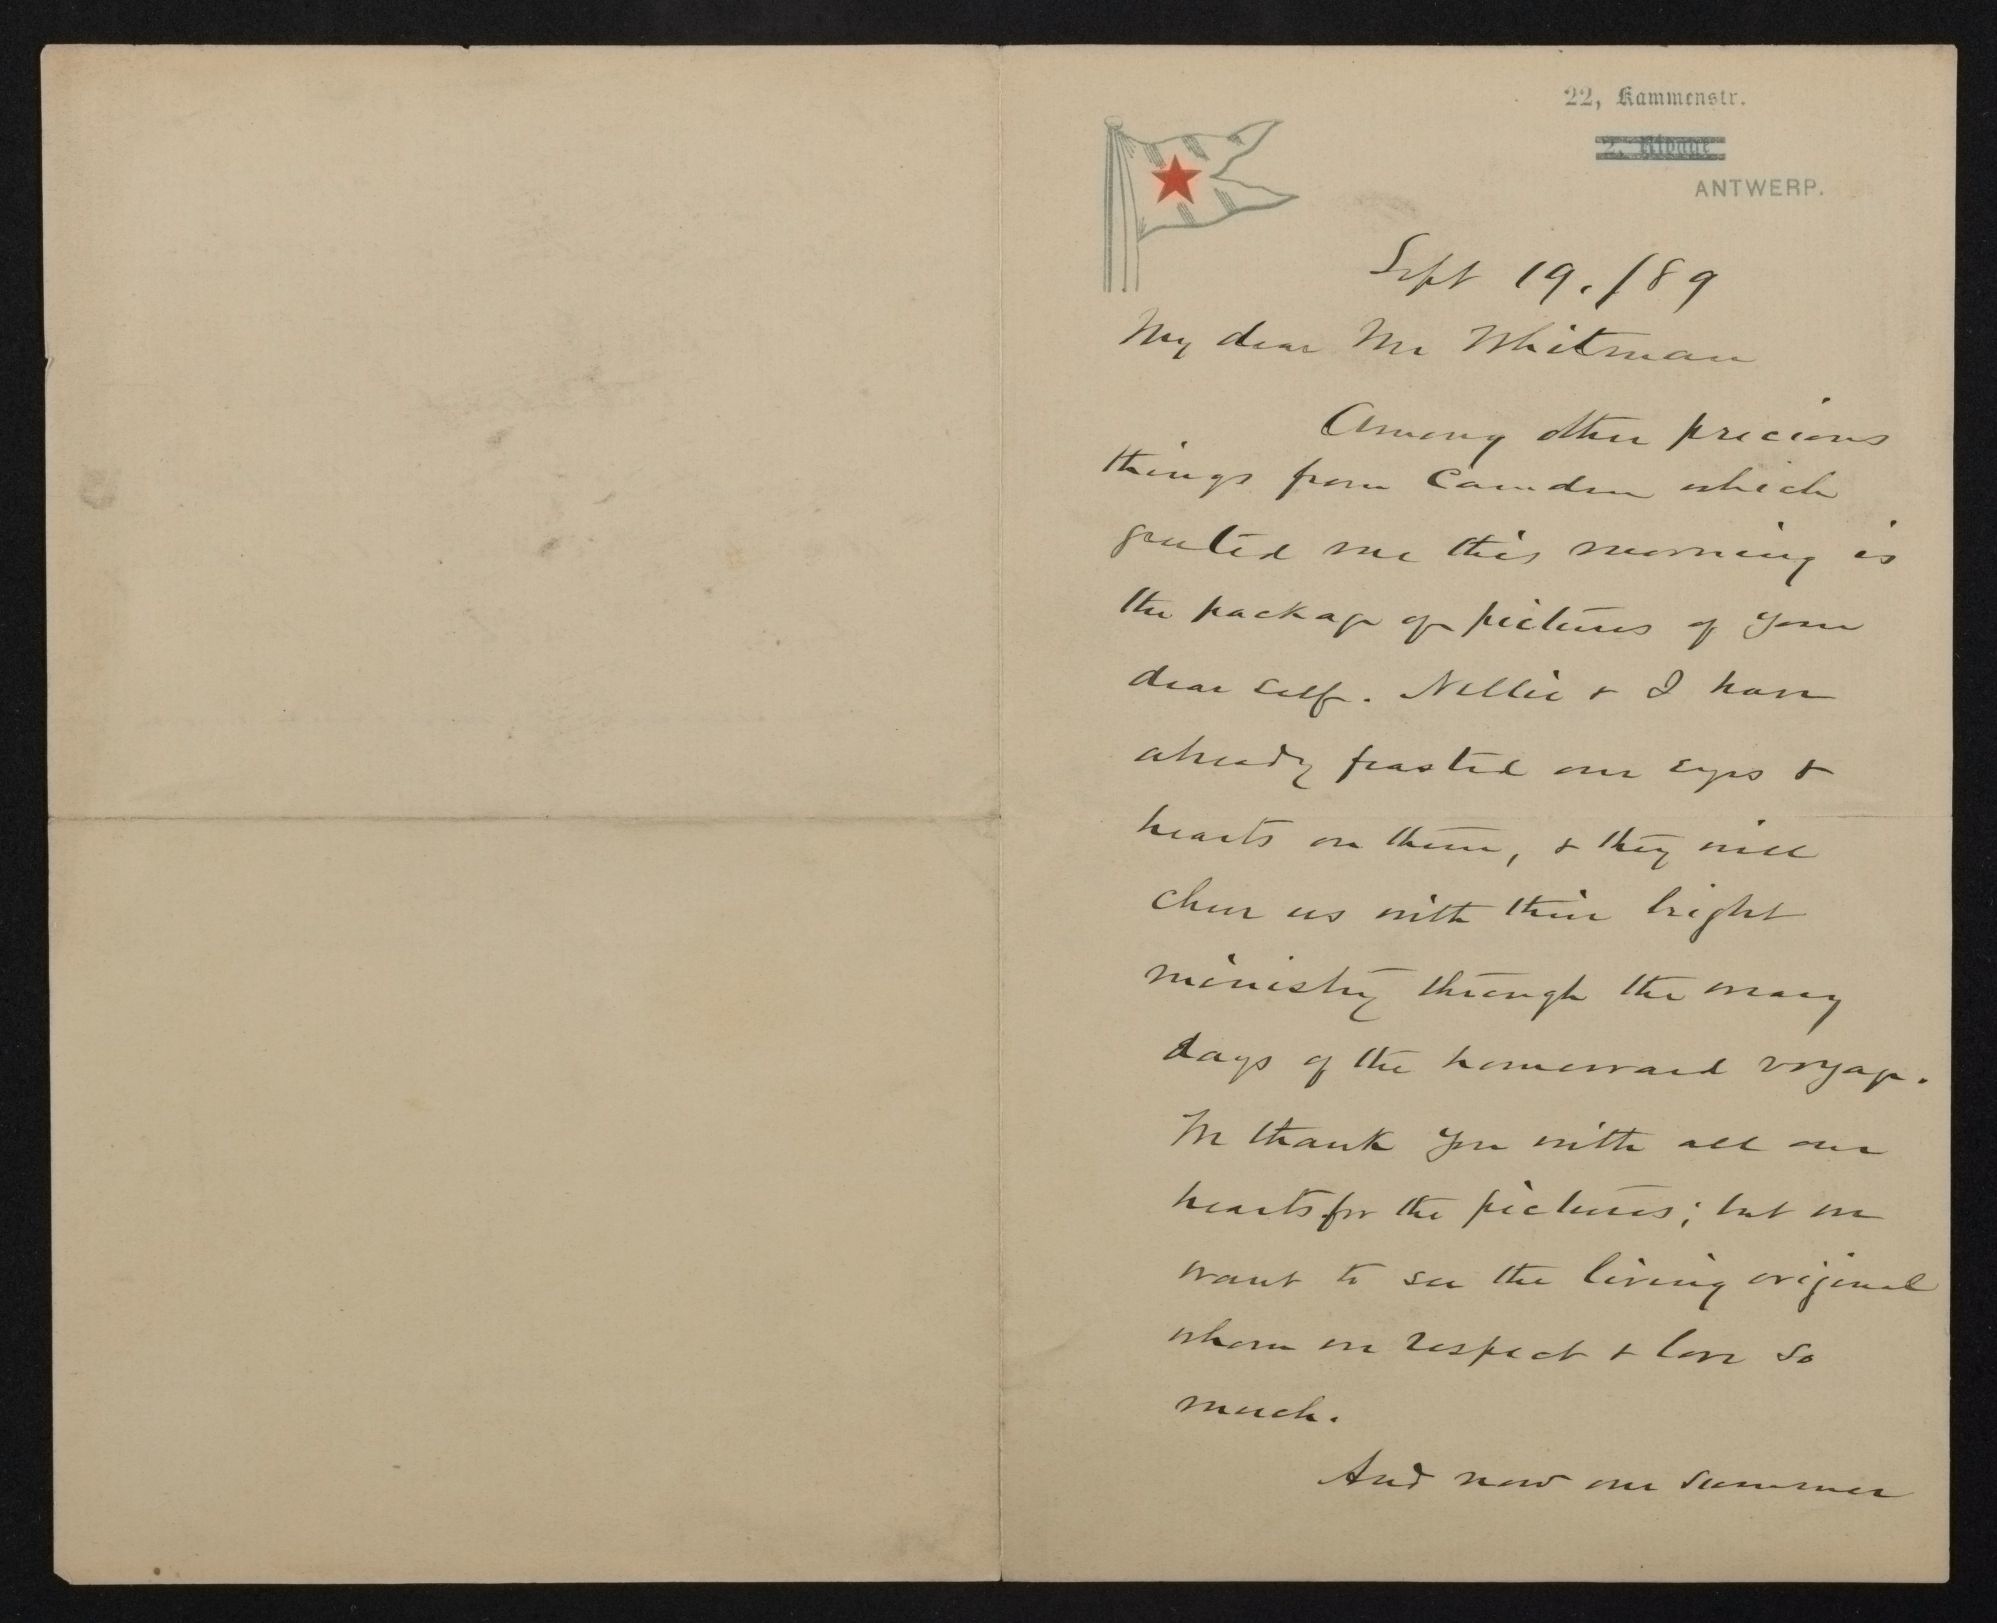 22, Kammenstr.
2, Rivage
ANTWERP.
Sept 19. /89
My dear Mr Whitman
Among other precious
things from Camden which
greeted me this morning is
the package of pictures of your
dear self. Nellie & I have
already feasted our eyes &
hearts on them, & they will
cheer us with their bright
ministry through the many
days of the homeward voyage.
We thank you with all our
hearts for the pictures; but we
want to see the living original
whom we respect & love so
much.
And now our summer